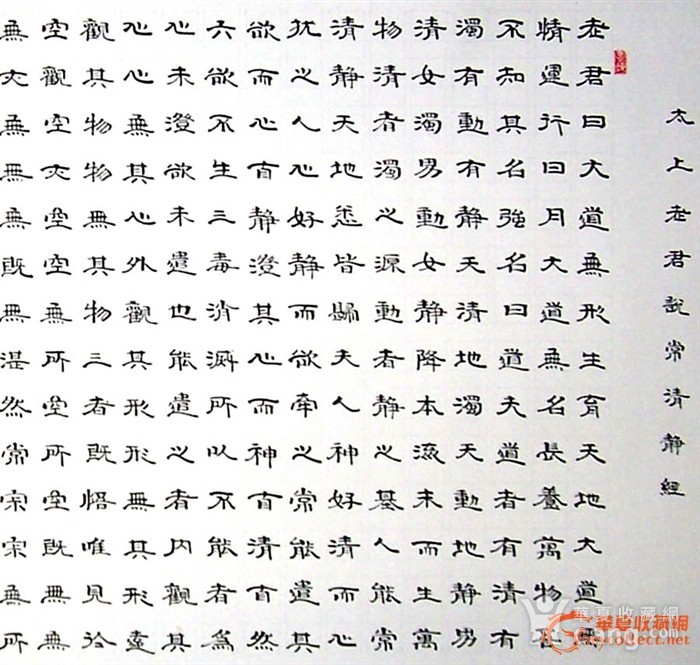 太上老君說常清靜經
老君曰大道無形生育天地大道無
情運行日月大道無名長養萬物吾
不知其名強名曰道夫道者有清有
濁有動有靜天清地濁天動地靜男
清女濁男動女靜降本流末而生萬
物清者濁之源動者靜之基人能常
清靜天地悉皆歸夫人神好清而心
擾之人心好靜而欲牽之常能遣其
欲而心自靜澄其心而神自清自然
六欲不生三毒消滅所以不能者為
心未澄欲未遣也能遣之者內觀其
心心無其心外觀其形形無其形遠
觀其物物無其物三者既悟唯見於
空觀空亦空空無所空所空既無無
無亦無無無既無湛然常寂寂無所
華夏收藏網
華夏收藏網